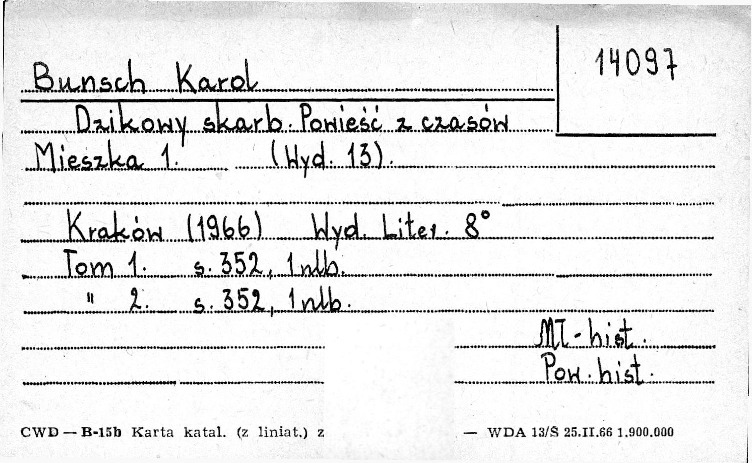 14097
Bunsch Karol
Dzikowy skarb. Powieść z czasów
Mieszka 1. (Wyd. 13).
Kraków (1966) Wyd. Liter. 8°
Tom 1. s. 352, 1 nlb.
" 2. s. 352, 1 nlb.
MT-hist.
Pow. hist.
CWD — B-15b Karta katal. (z liniat.) z — WDA 13/S 25.II.66 1.900.000